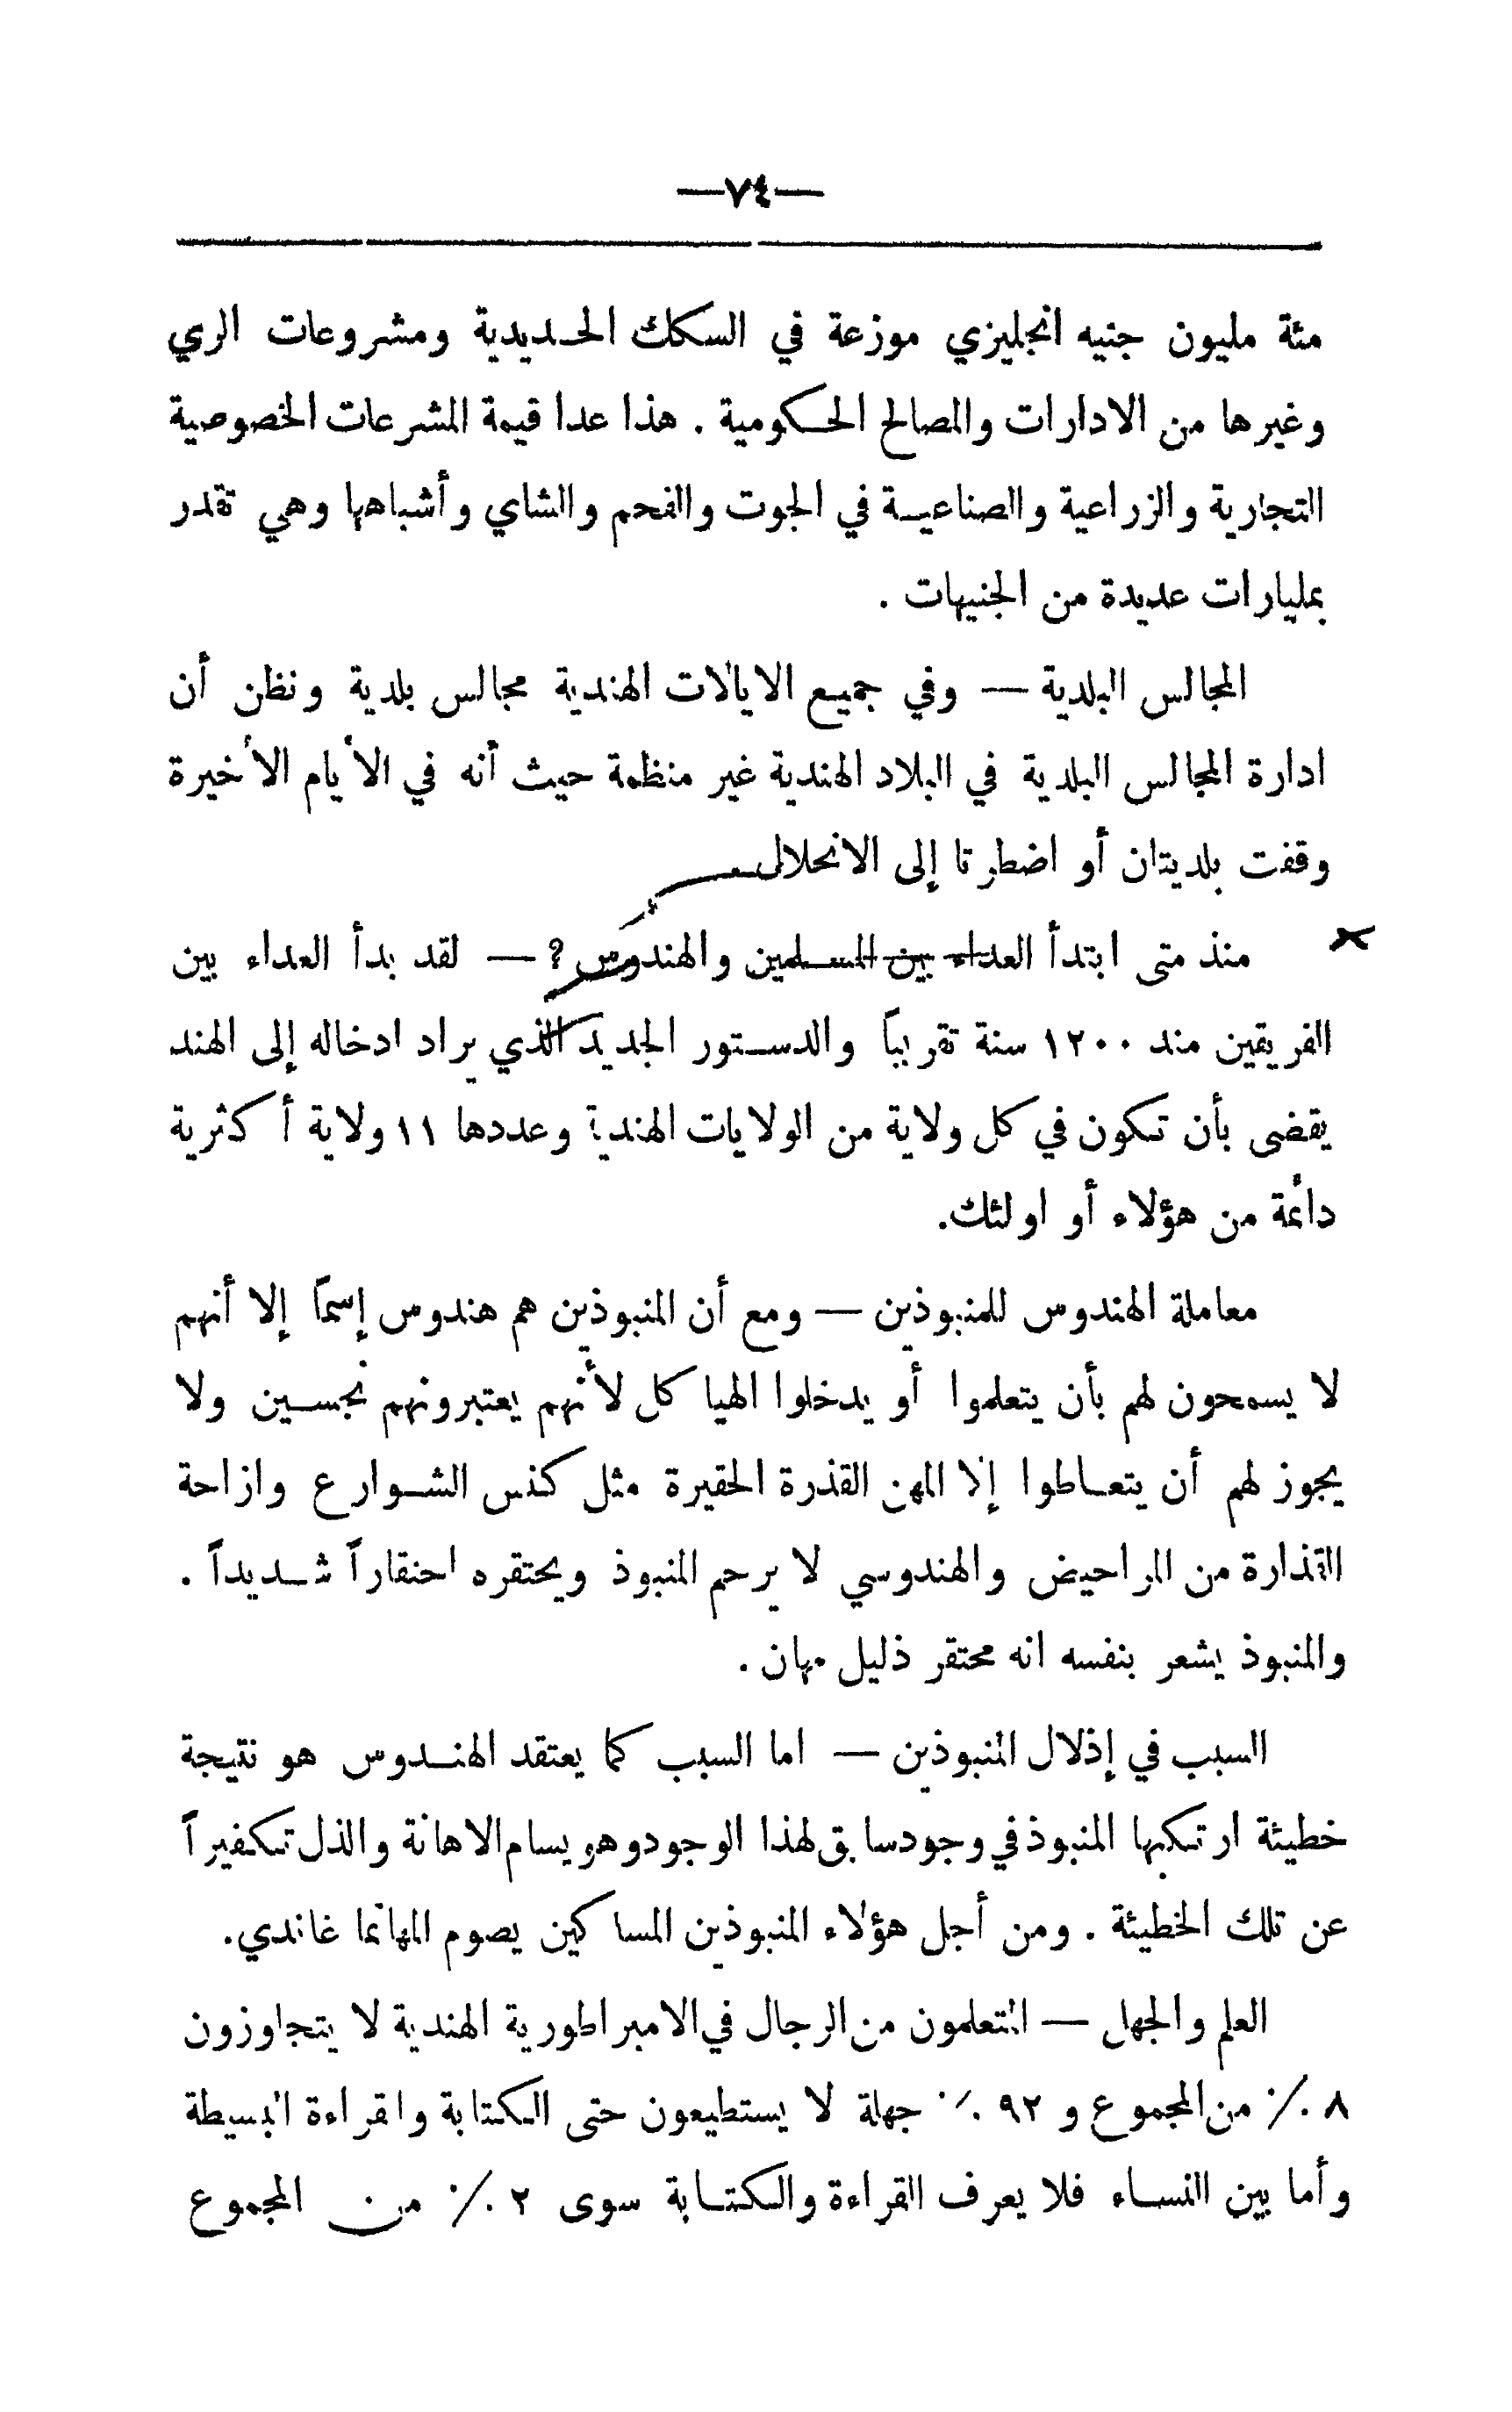 —٧٤—
مئة مليون جنيه انجليزي موزعة في السكك الحديدية ومشروعات الري
وغيرها من الادارات والمصالح الحكومية . هذا عدا قيمة المشرعات الخصوصية
التجارية والزراعية والصناعية في الجوت والفحم والشاي وأشباهها وهي تقدر
بمليارات عديدة من الجنيهات .
المجالس البلدية — وفي جميع الايالات الهندية مجالس بلدية ونظن أن
ادارة المجالس البلدية في البلاد الهندية غير منظمة حيث أنه في الأيام الأخيرة
وقفت بلديتان أو اضطرتا إلى الانحلال
منذ متى ابتدأ العداء بين المسلمين والهندوس ؟ — لقد بدأ العداء بين
الفريقين مند ١٢٠٠ سنة تقريباً والدستور الجديد الذي يراد ادخاله إلى الهند
يقضى بأن تكون في كل ولاية من الولايات الهندية وعددها ١١ ولاية أكثرية
دائمة من هؤلاء أو اولئك.
معاملة الهندوس للمنبوذين — ومع أن المنبوذين هم هندوس إسماً إلا أنهم
لا يسمحون لهم بأن يتعلموا أو يدخلوا الهياكل لأنهم يعتبرونهم نجسين ولا
يجوز لهم أن يتعاطوا إلا المهن القذرة الحقيرة مثل كنس الشوارع وازاحة
القذارة من المراحيض والهندوسي لا يرحم المنبوذ ويحتقره احتقاراً شديداً .
والمنبوذ يشعر بنفسه انه محتقر ذليل مهان .
السبب في إذلال المنبوذين — اما السبب كما يعتقد الهندوس هو نتيجة
خطيئة ارتكبها المنبوذ في وجود سابق لهذا الوجود وهو يسام الاهانة والذل تكفيراً
عن تلك الخطيئة . ومن أجل هؤلاء المنبوذين المساكين يصوم المهاتما غاندي.
العلم والجهل — المتعلمون من الرجال في الامبراطورية الهندية لا يتجاوزون
٨ ٪ من المجموع و ٩٢ ٪ جهلة لا يستطيعون حتى الكتابة والقراءة البسيطة
وأما بين النساء فلا يعرف القراءة والكتابة سوى ٢ ٪ من المجموع